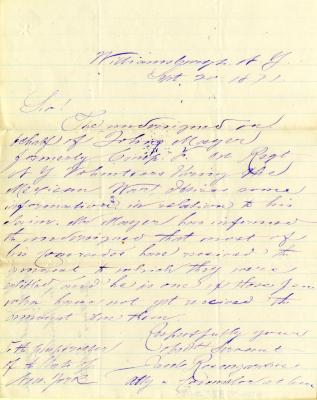 Williamsburgh N.Y.
Sept 2 1871.
Sir!
The undersigned in
behalf of John Mayer
formerly Comp. 1st Regt
N Y Volunteers During the
Mexican War desires some
information in relation to his
claim. Mr Mayer has informed
the undersigned that most of
his Comrades have received the
amount to which they were
entitled and he is one of those few
who have not yet received the
amount due them.
Respectfully yours
Obdt Servant
Jacob
To the
of the State of
New York
atty & Counselor at Law